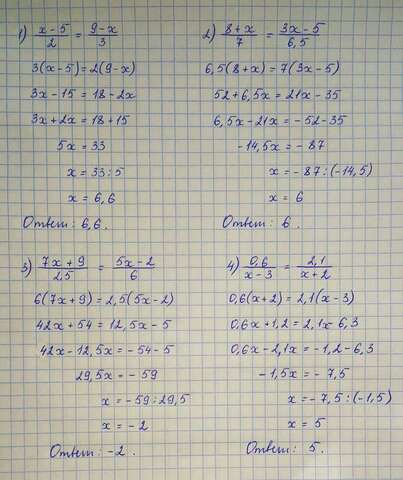 1) (x-5)/2 = (9-x)/3
3(x-5)=2(9-x)
3x-15=18-2x
3x+2x=18+15
5x=33
x=33:5
x=6,6
Ответ: 6,6.
2) (8+x)/7 = (3x-5)/6,5
6,5(8+x)=7(3x-5)
52+6,5x=21x-35
6,5x-21x=-52-35
-14,5x=-87
x=-87:(-14,5)
x=6
Ответ: 6.
3) (7x+9)/2,5 = (5x-2)/6
6(7x+9)=2,5(5x-2)
42x+54=12,5x-5
42x-12,5x=-54-5
29,5x=-59
x=-59:29,5
x=-2
Ответ: -2.
4) 0,6/(x-3) = 2,1/(x+2)
0,6(x+2)=2,1(x-3)
0,6x+1,2=2,1x 6,3
0,6x-2,1x=-1,2-6,3
-1,5x=-7,5
x=-7,5:(-1,5)
x=5
Ответ: 5.